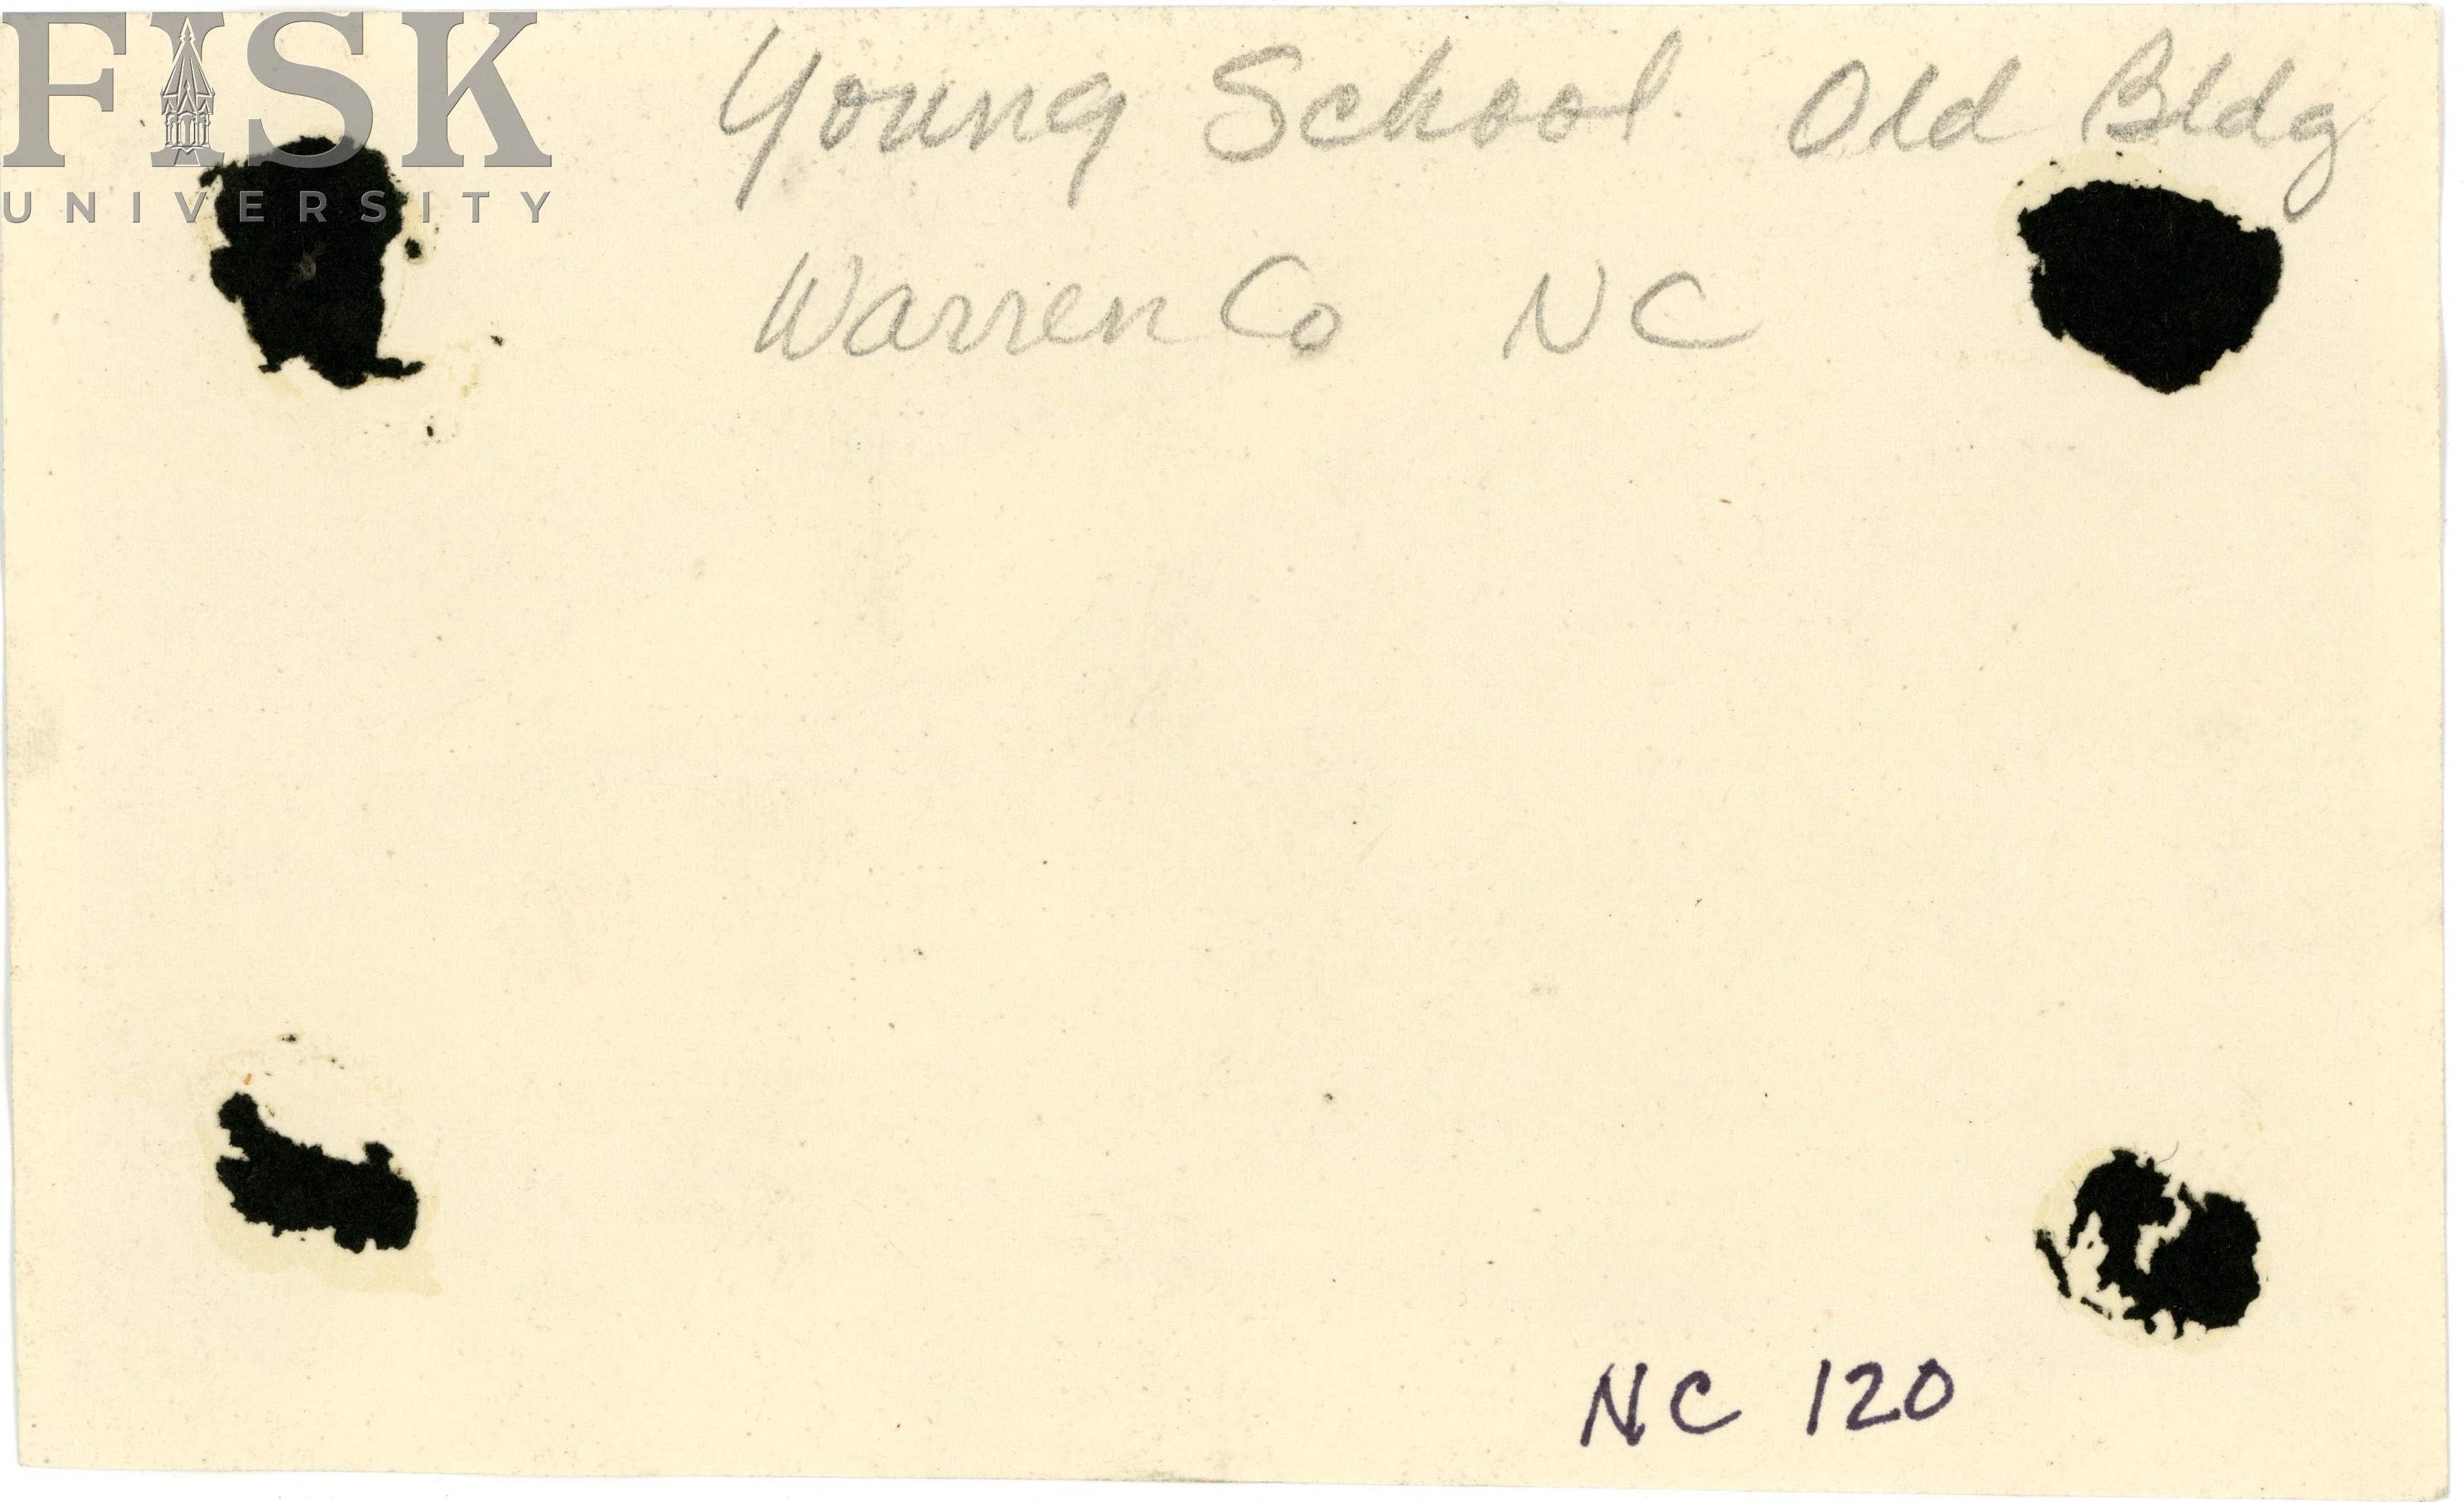 FISK
UNIVERSITY
Young School Old Bldg
Warren Co NC
NC 120